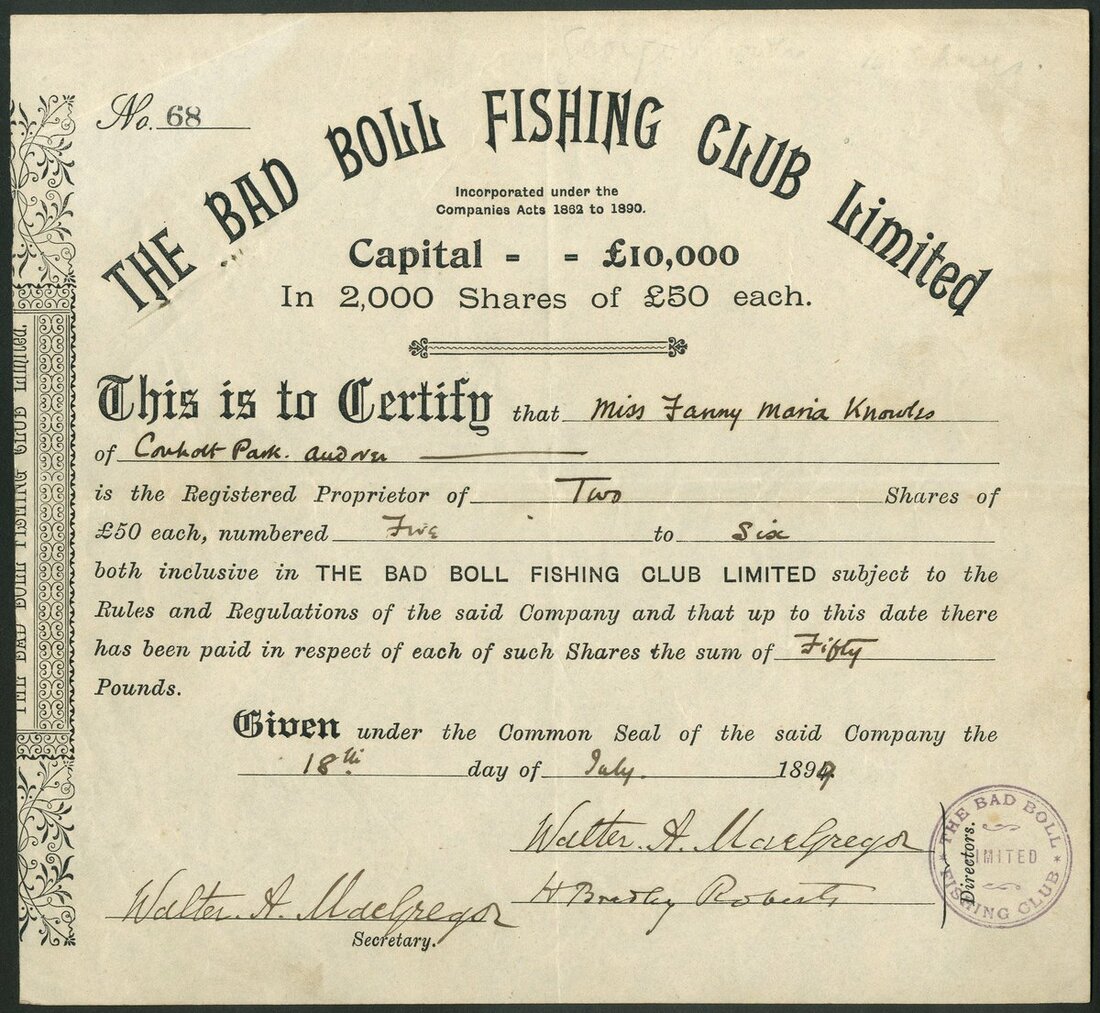 No. 68
THE BAD BOLL FISHING CLUB Limited
Incorporated under the
Companies Acts 1862 to 1890.
Capital = = £10,000
In 2,000 Shares of £50 each.
This is to Certify that Miss Fanny Maria Knowles
of Conholt Park. Andover
is the Registered Proprietor of Two Shares of
£50 each, numbered Five to Six
both inclusive in THE BAD BOLL FISHING CLUB LIMITED subject to the
Rules and Regulations of the said Company and that up to this date there
has been paid in respect of each of such Shares the sum of Fifty
Pounds.
Given under the Common Seal of the said Company the
18th day of July. 1897
Walter. A. MacGregor
H Bradley Roberts
Directors.
Walter. A. MacGregor
Secretary.
THE BAD BOLL FISHING CLUB
LIMITED
THE BAD BOLL FISHING CLUB LIMITED